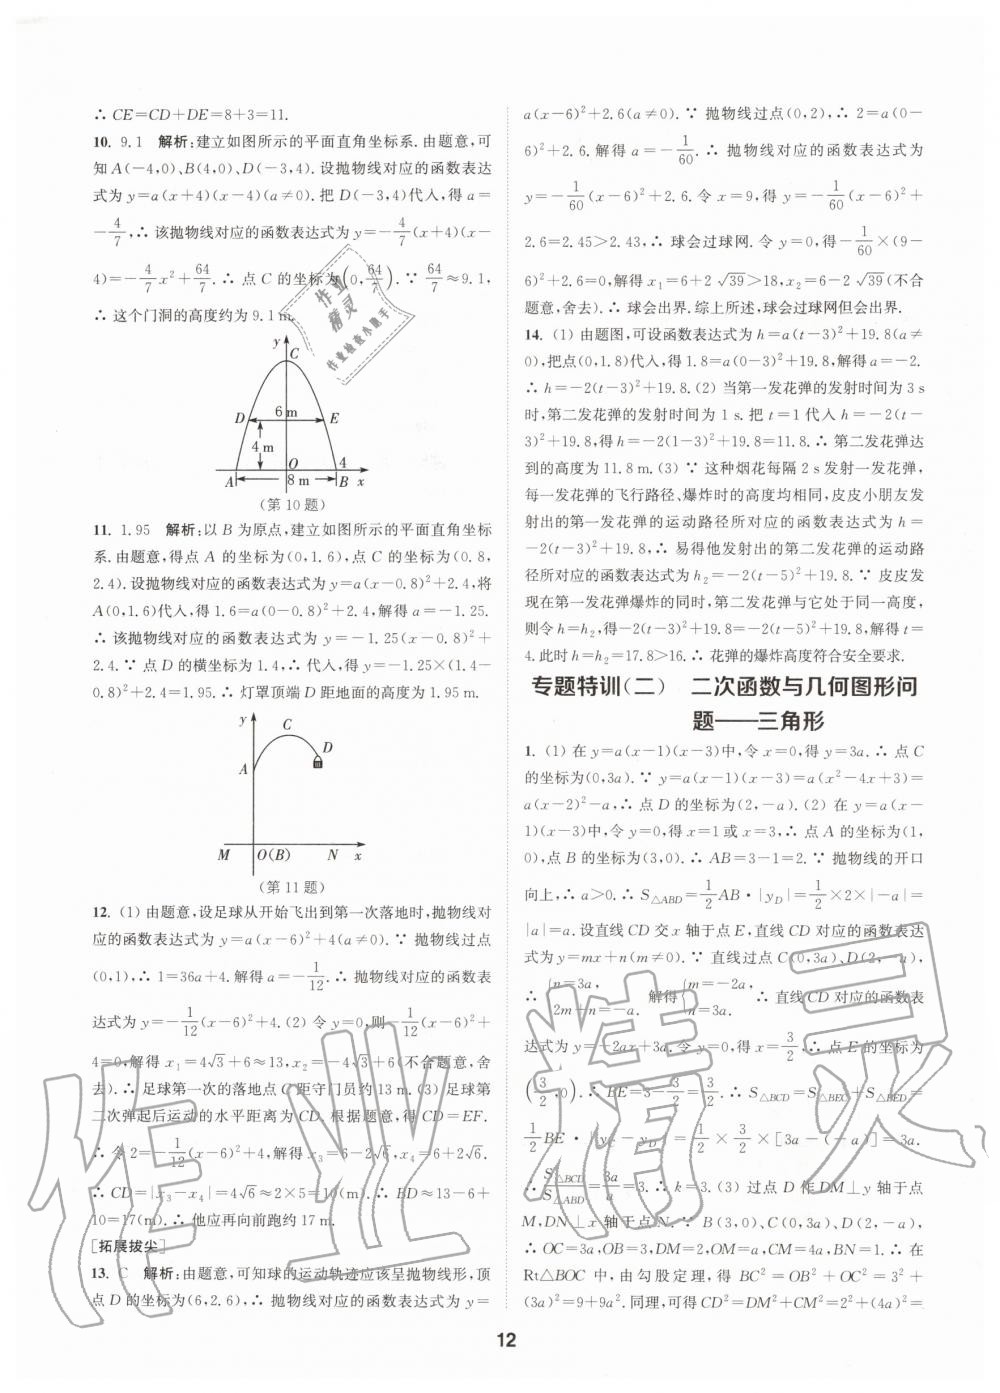 ∴ CE=CD+DE=8+3=11.
10. 9.1 解析:建立如图所示的平面直角坐标系.由题意,可
知 A(-4,0)、B(4,0)、D(-3,4).设抛物线对应的函数表达
式为 y=a(x+4)(x-4)(a≠0).把 D(-3,4)代入,得 a=
-4/7,∴ 该抛物线对应的函数表达式为 y=-4/7(x+4)(x-
4)=-4/7x²+64/7.∴ 点 C 的坐标为(0,64/7).∵ 64/7≈9.1,
∴ 这个门洞的高度约为 9.1 m.
作业精灵
作业检查小能手
y
C
D 6 m E
4 m
O 4
A 8 m B x
(第 10 题)
11. 1.95 解析:以 B 为原点,建立如图所示的平面直角坐标
系.由题意,得点 A 的坐标为(0,1.6),点 C 的坐标为(0.8,
2.4).设抛物线对应的函数表达式为 y=a(x-0.8)²+2.4,将
A(0,1.6)代入,得 1.6=a(0-0.8)²+2.4,解得 a=-1.25.
∴ 该抛物线对应的函数表达式为 y=-1.25(x-0.8)²+
2.4.∵ 点 D 的横坐标为 1.4,∴ 代入,得 y=-1.25×(1.4-
0.8)²+2.4=1.95.∴ 灯罩顶端 D 距地面的高度为 1.95 m.
y
C
D
A
M O(B) N x
(第 11 题)
12. (1) 由题意,设足球从开始飞出到第一次落地时,抛物线对
应的函数表达式为 y=a(x-6)²+4(a≠0).∵ 抛物线过点
(0,1),∴ 1=36a+4.解得 a=-1/12.∴ 抛物线对应的函数表
达式为 y=-1/12(x-6)²+4.(2) 令 y=0,则-1/12(x-6)²+
4=0,解得 x₁=4√3+6≈13,x₂=-4√3+6(不合题意,舍
去).∴ 足球第一次的落地点 C 距守门员约 13 m.(3) 足球第
二次弹起后运动的水平距离为 CD.根据题意,得 CD=EF.
∴ 令 2=-1/12(x-6)²+4,解得 x₃=6-2√6,x₄=6+2√6.
∴ CD=|x₃-x₄|=4√6≈2×5=10(m).∴ BD≈13-6+
10=17(m).∴ 他应再向前跑约 17 m.
[拓展拔尖]
13. C 解析:由题意,可知球的运动轨迹应该呈抛物线形,顶
点 D 的坐标为(6,2.6),∴ 抛物线对应的函数表达式为 y=
a(x-6)²+2.6(a≠0).∵ 抛物线过点(0,2),∴ 2=a(0-
6)²+2.6.解得 a=-1/60.∴ 抛物线对应的函数表达式为
y=-1/60(x-6)²+2.6.令 x=9,得 y=-1/60(x-6)²+
2.6=2.45>2.43,∴ 球会过球网.令 y=0,得-1/60×(9-
6)²+2.6=0,解得 x₁=6+2√39>18,x₂=6-2√39(不合
题意,舍去).∴ 球会出界.综上所述,球会过球网但会出界.
14. (1) 由题图,可设函数表达式为 h=a(t-3)²+19.8(a≠
0),把点(0,1.8)代入,得 1.8=a(0-3)²+19.8,解得 a=-2.
∴ h=-2(t-3)²+19.8.(2) 当第一发花弹的发射时间为 3 s
时,第二发花弹的发射时间为 1 s.把 t=1 代入 h=-2(t-
3)²+19.8,得 h=-2(1-3)²+19.8=11.8.∴ 第二发花弹达
到的高度为 11.8 m.(3) ∵ 这种烟花每隔 2 s 发射一发花弹,
每一发花弹的飞行路径、爆炸时的高度均相同,皮皮小朋友发
射出的第一发花弹的运动路径所对应的函数表达式为 h=
-2(t-3)²+19.8,∴ 易得他发射出的第二发花弹的运动路
径所对应的函数表达式为 h₂=-2(t-5)²+19.8.∵ 皮皮发
现在第一发花弹爆炸的同时,第二发花弹与它处于同一高度,
则令 h=h₂,得-2(t-3)²+19.8=-2(t-5)²+19.8,解得 t=
4.此时 h=h₂=17.8>16.∴ 花弹的爆炸高度符合安全要求.
专题特训(二) 二次函数与几何图形问
题——三角形
1. (1) 在 y=a(x-1)(x-3)中,令 x=0,得 y=3a.∴ 点 C
的坐标为(0,3a).∵ y=a(x-1)(x-3)=a(x²-4x+3)=
a(x-2)²-a,∴ 点 D 的坐标为(2,-a).(2) 在 y=a(x-
1)(x-3)中,令 y=0,得 x=1 或 x=3,∴ 点 A 的坐标为(1,
0),点 B 的坐标为(3,0).∴ AB=3-1=2.∵ 抛物线的开口
向上,∴ a>0.∴ S△ABD=1/2AB·|yD|=1/2×2×|-a|=
|a|=a.设直线 CD 交 x 轴于点 E,直线 CD 对应的函数表达
式为 y=mx+n(m≠0).∵ 直线过点 C(0,3a)、D(2,-a),
∴ {n=3a, 2m+n=-a. 解得{m=-2a, n=3a. ∴ 直线 CD 对应的函数表
达式为 y=-2ax+3a.令 y=0,得 x=3/2,∴ 点 E 的坐标为
(3/2,0).∴ BE=3-3/2=3/2.∴ S△BCD=S△BEC+S△BED=
1/2BE·|yC-yD|=1/2×3/2×[3a-(-a)]=3a.
∴ S△BCD/S△ABD=3a/a=3.∴ k=3.(3) 过点 D 作 DM⊥y 轴于点
M,DN⊥x 轴于点 N.∵ B(3,0)、C(0,3a)、D(2,-a),
∴ OC=3a,OB=3,DM=2,OM=a,CM=4a,BN=1.∴ 在
Rt△BOC 中,由勾股定理,得 BC²=OB²+OC²=3²+
(3a)²=9+9a².同理,可得 CD²=DM²+CM²=2²+(4a)²=
作业精灵
12